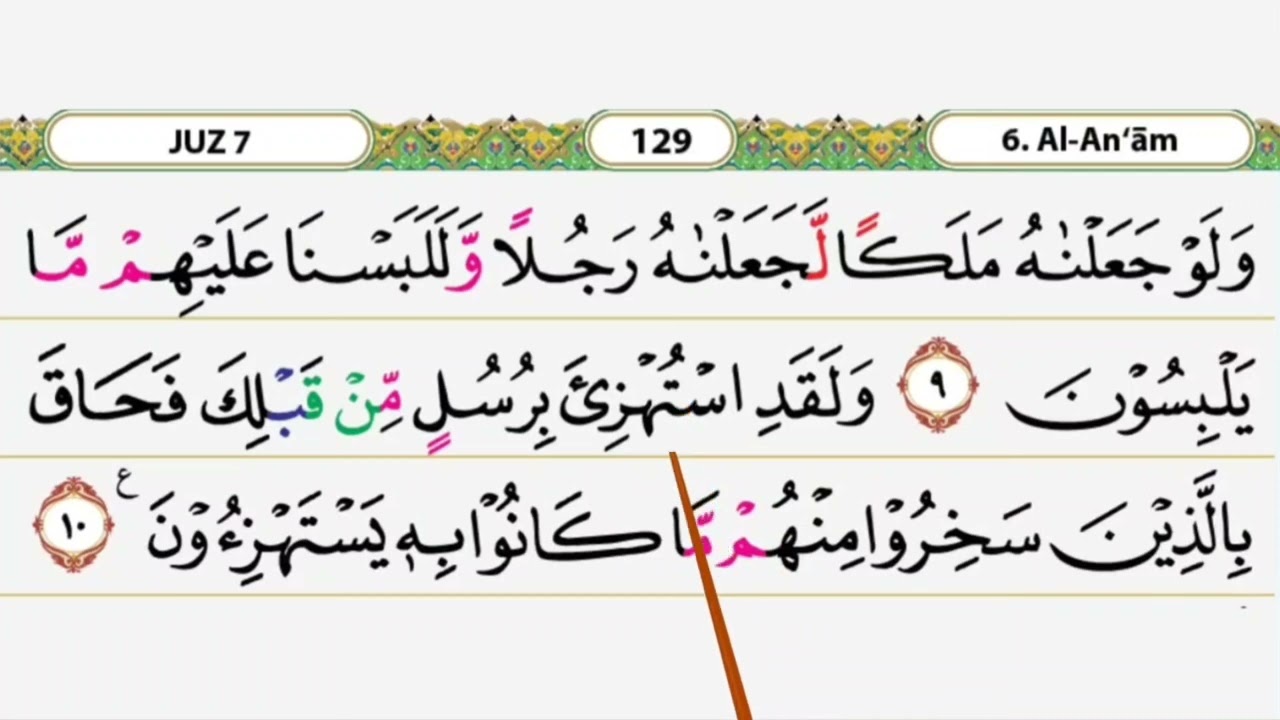 JUZ 7
129
6. Al-An‘ām
وَلَوْ جَعَلْنٰهُ مَلَكًا لَّجَعَلْنٰهُ رَجُلًا وَّلَلَبَسْنَا عَلَيْهِمْ مَّا
يَلْبِسُوْنَ ٩ وَلَقَدِ اسْتُهْزِئَ بِرُسُلٍ مِّنْ قَبْلِكَ فَحَاقَ
بِالَّذِيْنَ سَخِرُوْا مِنْهُمْ مَّا كَانُوْا بِهٖ يَسْتَهْزِءُوْنَ ع ١٠